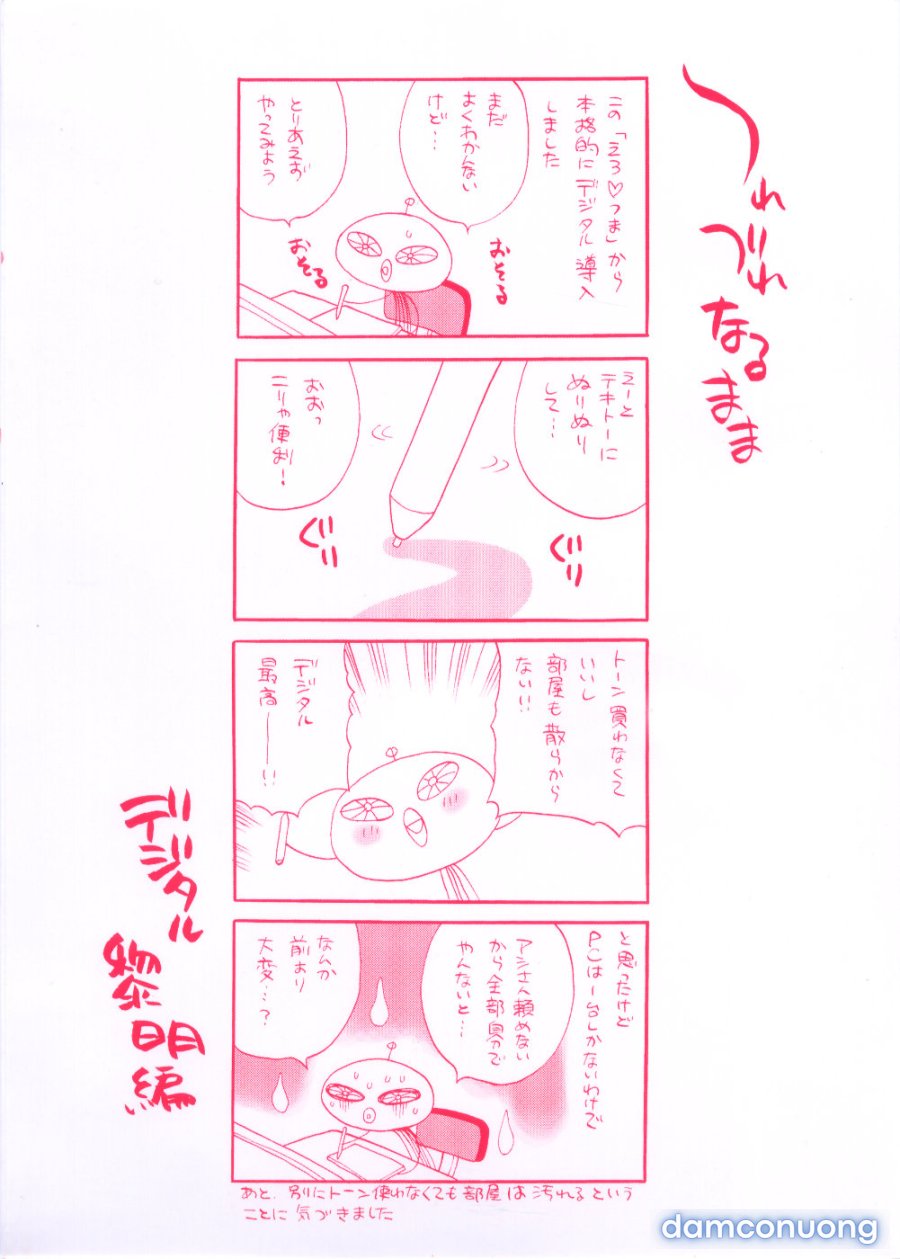 つれづれなるまま
この「えろ♡つま」から
本格的にデジタル導入
しました
まだ
よくわかんない
けど…
とりあえず
やってみよう
おそる
おそる
えーと
テキトーに
ぬりぬり
して…
おおっ
こりゃ便利！
ぐりり
ぐりり
トーン買わなくて
いいし
部屋も散らから
ない!!
デジタル
最高——!!
と思ったけど
PCは一台しかないわけで
アシさん頼めない
から全部自分で
やんないと…
なんか
前より
大変…?
あと、別にトーン使わなくても部屋は汚れるという
ことに気づきました
デジタル
黎明編
damconuong